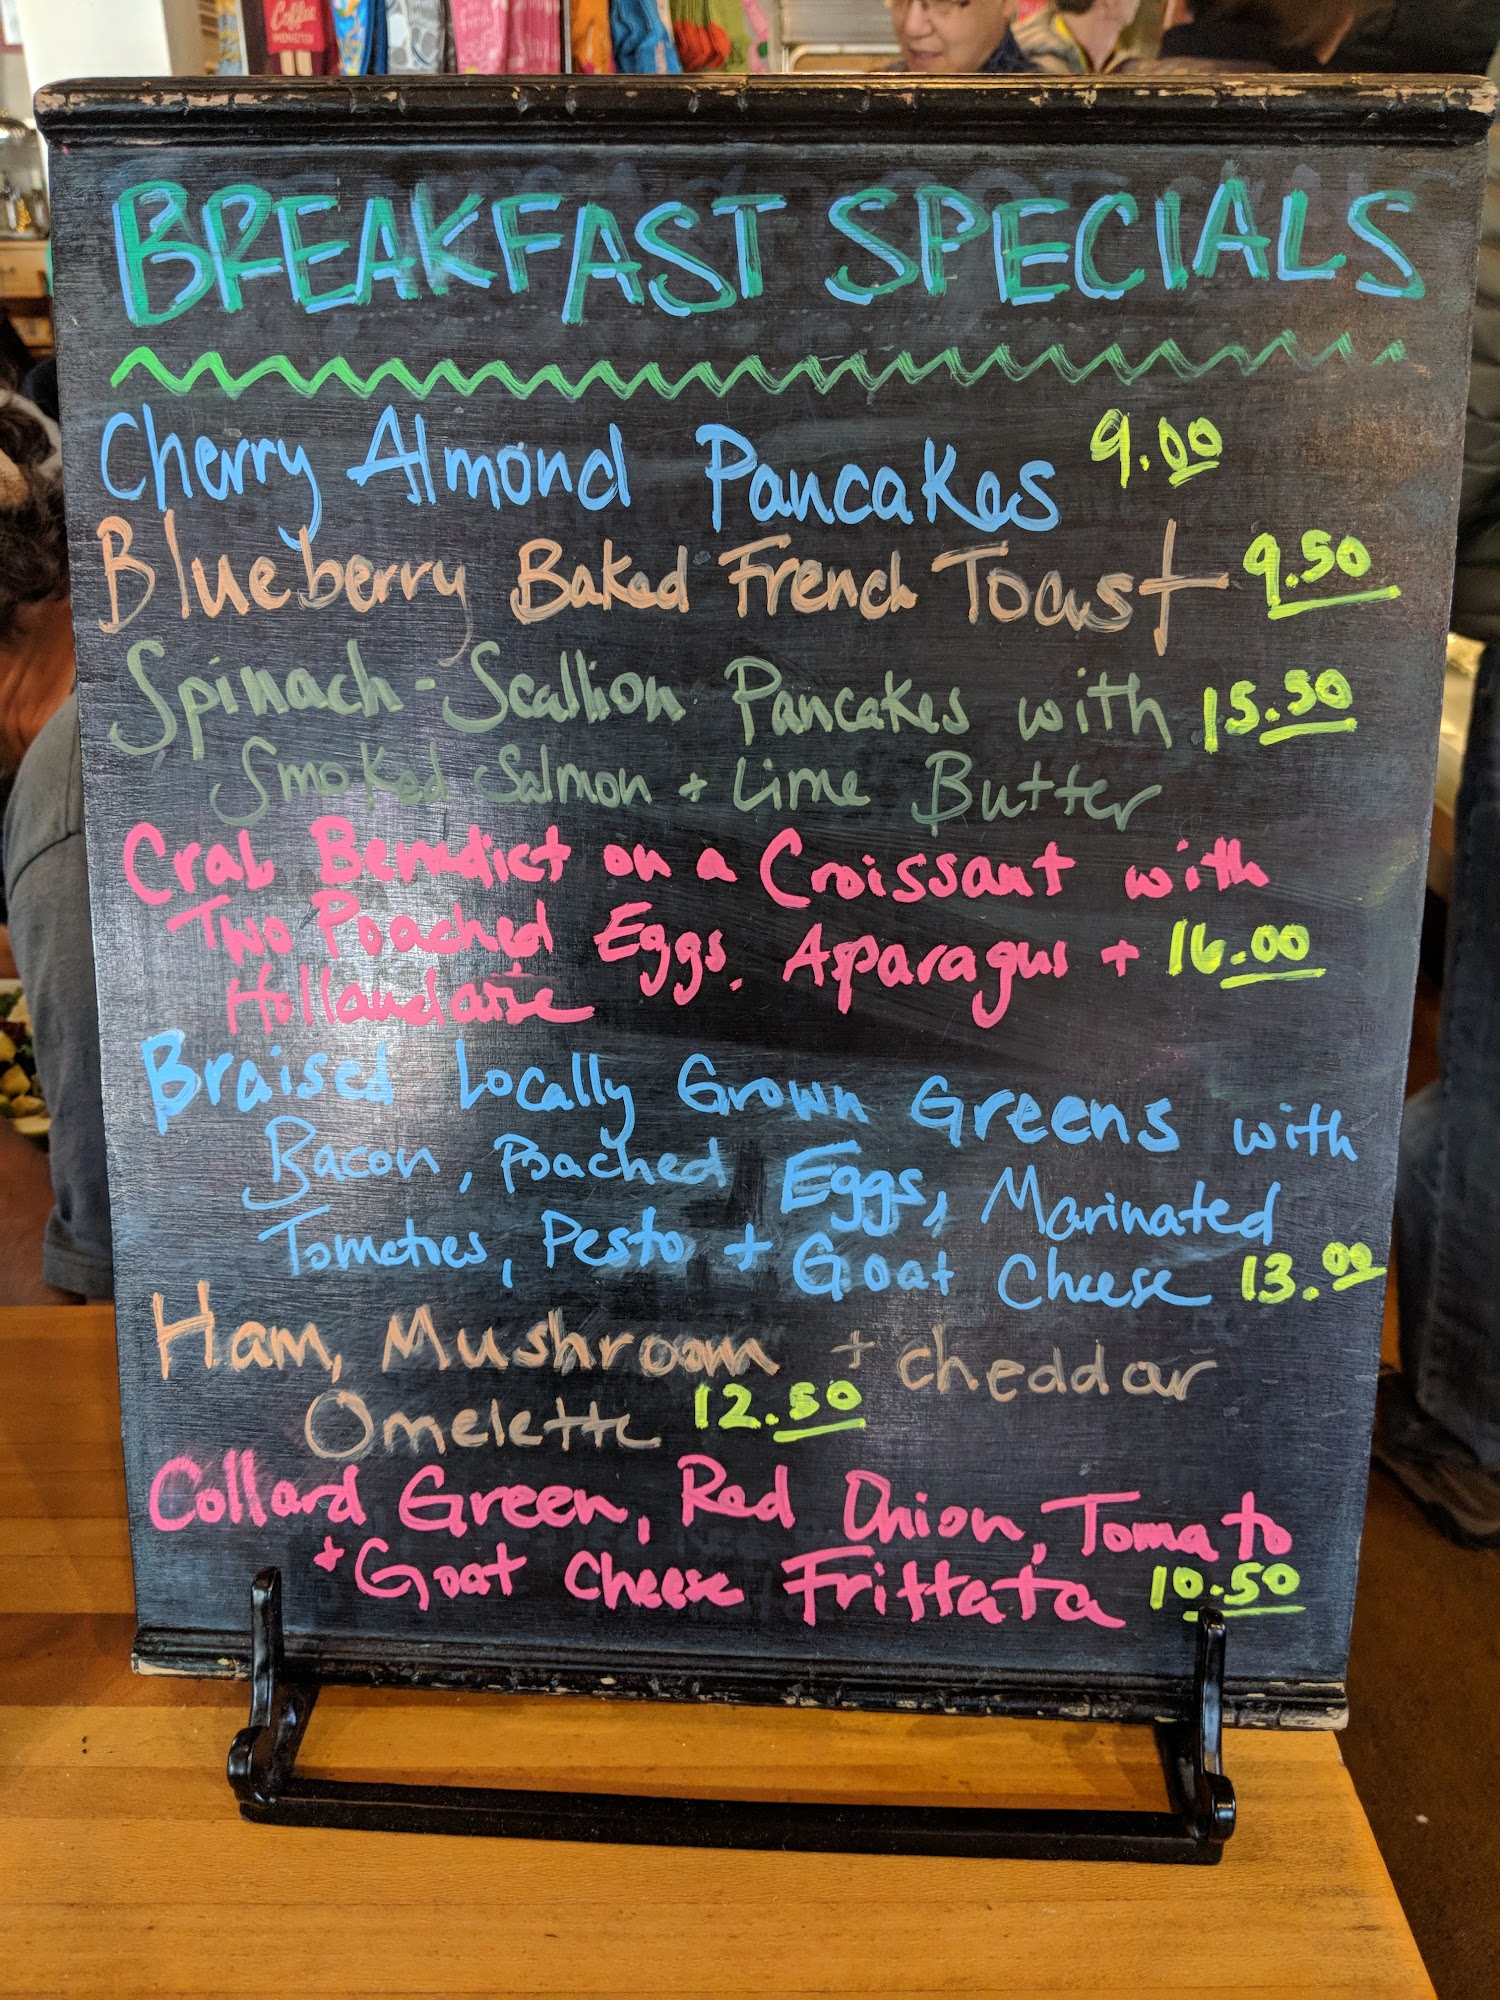 Coffee
MONSTER
BREAKFAST SPECIALS
Cherry Almond Pancakes 9.00
Blueberry Baked French Toast 9.50
Spinach-Scallion Pancakes with 15.50
Smoked Salmon + Lime Butter
Crab Benedict on a Croissant with
Two Poached Eggs, Asparagus + 16.00
Hollandaise
Braised Locally Grown Greens with
Bacon, Poached Eggs, Marinated
Tomatoes, Pesto + Goat Cheese 13.00
Ham, Mushroom + cheddar
Omelette 12.50
Collard Green, Red Onion, Tomato
+ Goat Cheese Frittata 10.50